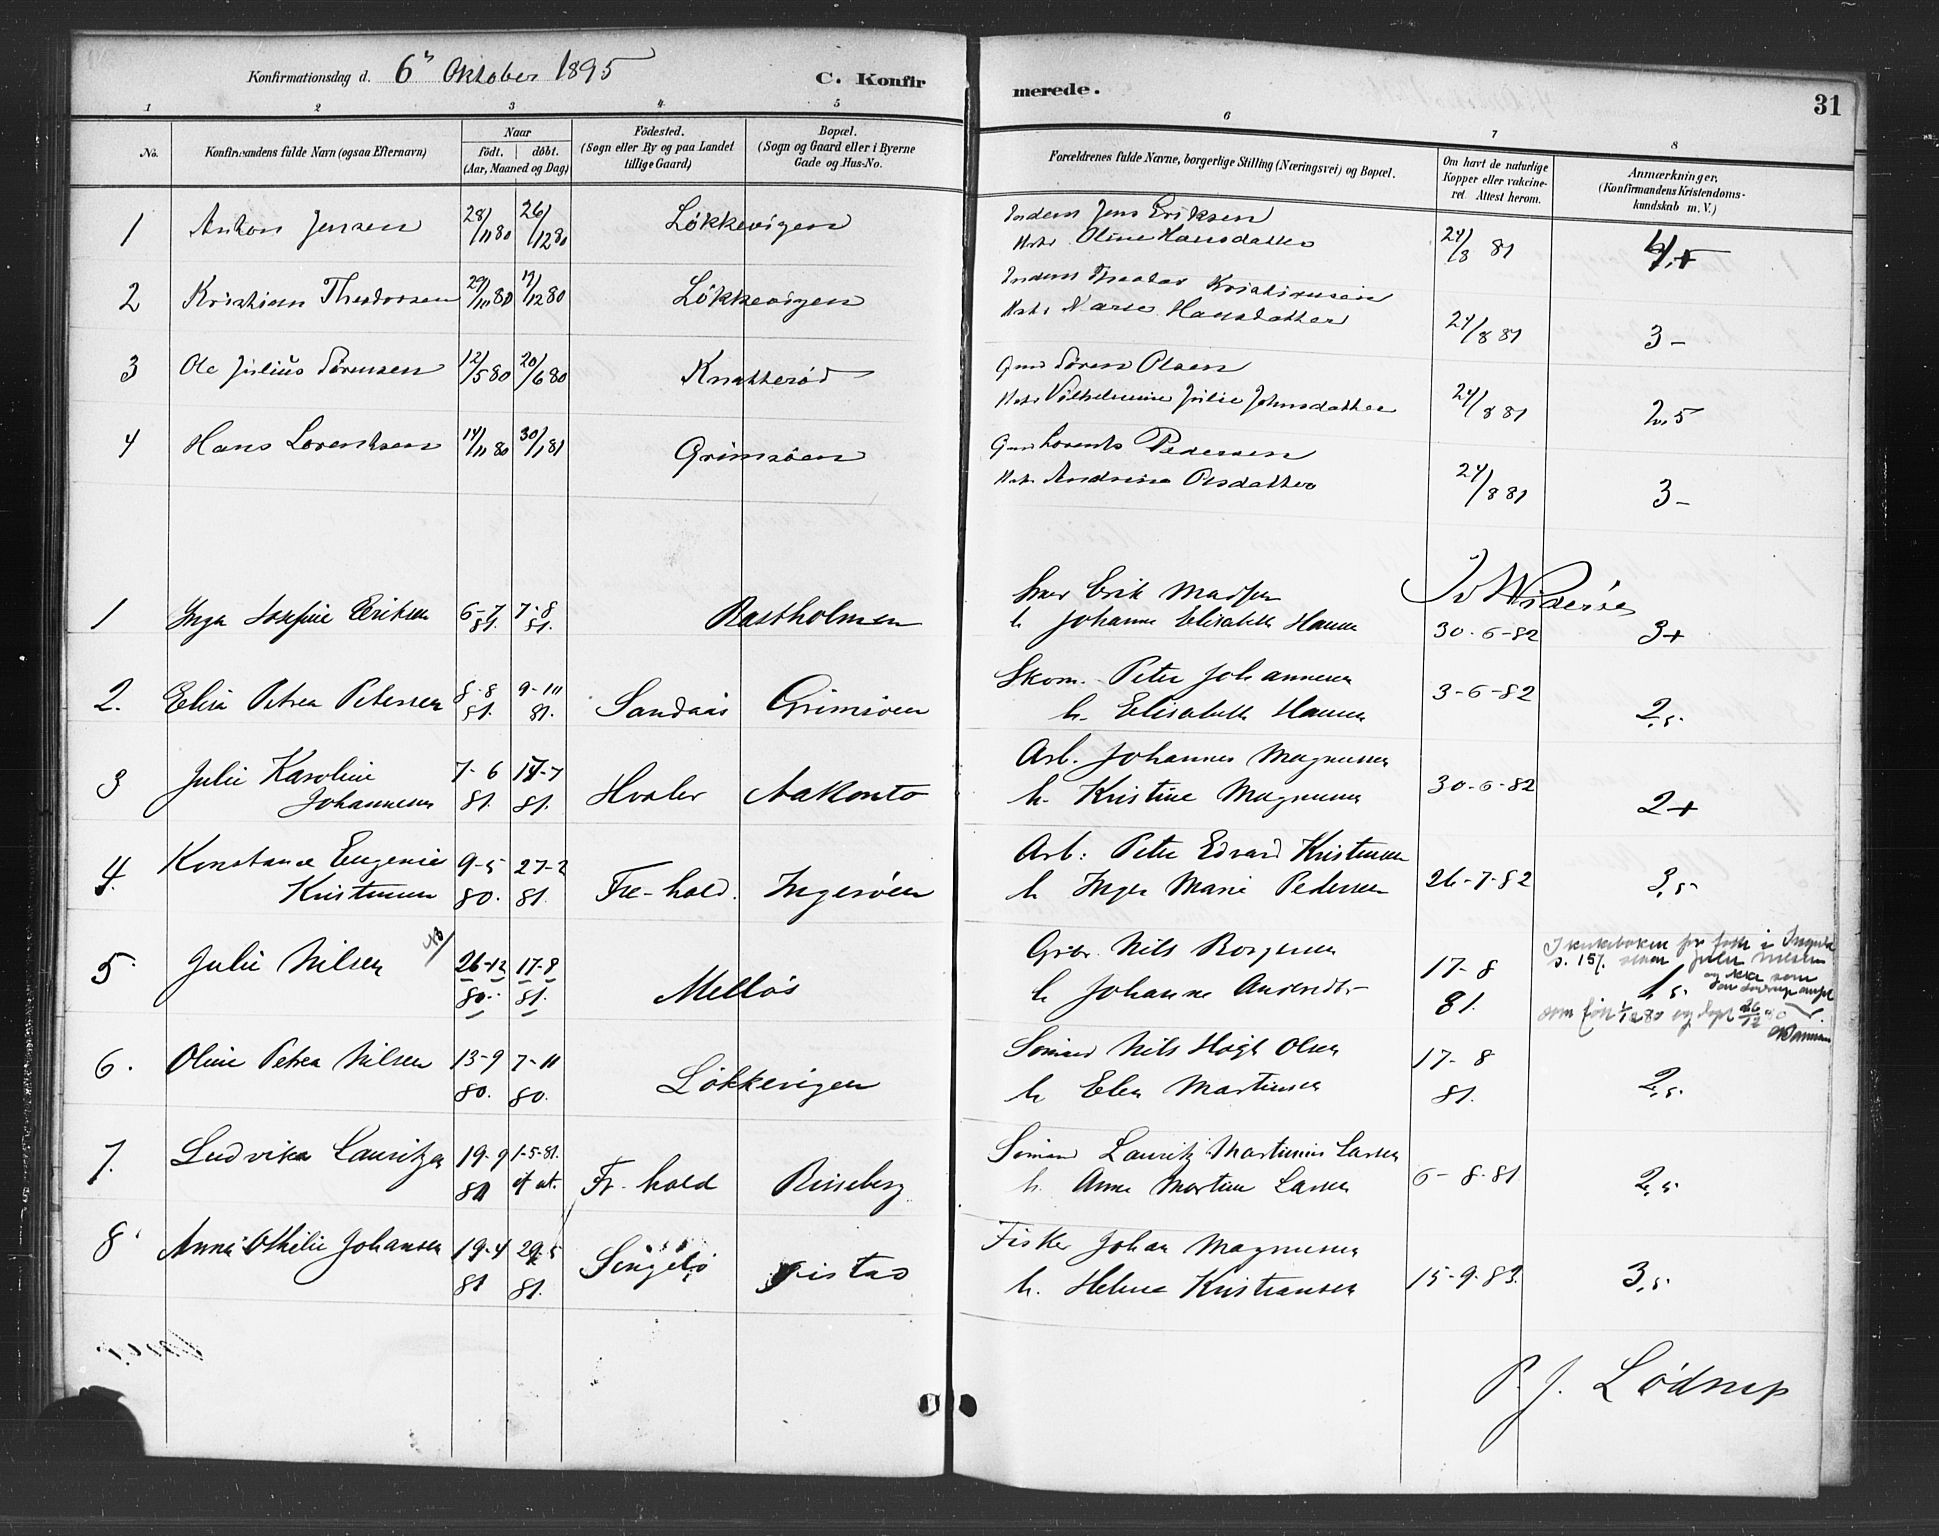 Konfirmationsdag d. 6 Oktober 1895
C. Konfirmerede.
31
1 2 3 4 5 6 7 8
No.
Konfirmandens fulde Navn (ogsaa Efternavn)
Naar
födt. döbt.
(Aar, Maaned og Dag)
Födested.
(Sogn eller By og paa Landet tillige Gaard)
Bopæl.
(Sogn og Gaard eller i Byerne Gade og Hus-No.
Forældrenes fulde Navne, borgerlige Stilling (Næringsvei) og Bopæl.
Om havt de naturlige Kopper eller vakcineret. Attest herom.
Anmærkninger,
(Konfirmandens Kristendomskundskab m. V.)
1 Anton Jensen 28/11 80 26/12 80 Løkkevigen Jens Eriksen
Oline Hansdatter 24/8 81
2 Kristian Theodorsen 29/11 80 19/12 80 Løkkevigen Kristiansen
Hansdatter 24/8 81 3 -
3 Ole Julius Sörensen 12/5 80 20/6 80 Knatterød Gmd Sören Olsen
Vilhelmine Julie Johnsdatter 24/8 81 2,5
4 Hans Lorentsen 14/11 80 30/1 81 Grimsöen Gmd Lorents Pedersen
Andrine Olsdatter 24/8 81 3 -
1 Inga Josefine Eriksen 6-7 81. 7-8 81. Rastholmen Erik Madsen
h. Johanne Elisabeth Hansen 30-6-82 3+
2. Elise Petrea Petersen 8-8 81. 9-10 81. Sandaas Grimsöen Skom. Peter Johannesen
h. Elisabeth Hansen 3-6-82 2,5
3 Julie Karoline Johannesen 7-6 81. 17-7 81. Hvaler Aakonto Arb. Johannes Magnussen
h. Kristine Magnussen 30-6-82 2+
4. Konstance Eugenie Kristensen 9-5 80. 27-2 81. Fr-hald. Ingeröen Arb: Peter Edvard Kristensen
h Inger Marie Pedersen 26-7-82 3,5
5 Julie Nilsen 26-12 80. 17-8 81. Mellös Gbr. Nils Borgersen
h Johanne Andersdtr 17-8 81.
6. Oline Petrea Nilsen 13-9 80. 7-11 80. Løkkevigen Sömand Nils Høgh Olsen
h Elen Martinsen 17-8 81. 2,5
7. Ludvika Lauritzen 19-9 80 1-5-81. Fr-hald Risseberg Sömand Lauritz Martinius Larsen
h. Anne Martine Larsen 6-8-81 2,5
8 Anna Othilie Johansen 19-4 81 29-5 81. Singelö Gistad Fisker Johan Magnussen
h. Helene Kristiansen 15-9-83. 3,5
P. J. Lödrup